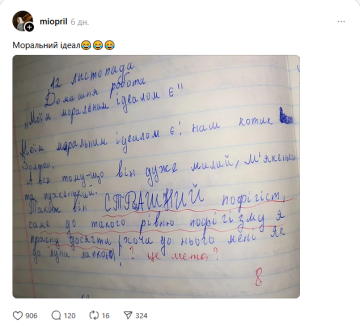 miopril 6 дн.
Моральний ідеал😂😂😂
12 листопада
Домашня робота
"Моїм моральним ідеалом є"
Моїм моральним ідеалом є: наш котик
А все тому-що він дуже милий, м'якенький
та прикольний.
Також він СТРАШНИЙ пофігіст,
саме до такого рівню пофігізму я
прагну досягти, хоча до нього мені як
до луни ? це мета?
8
906
120
16
324